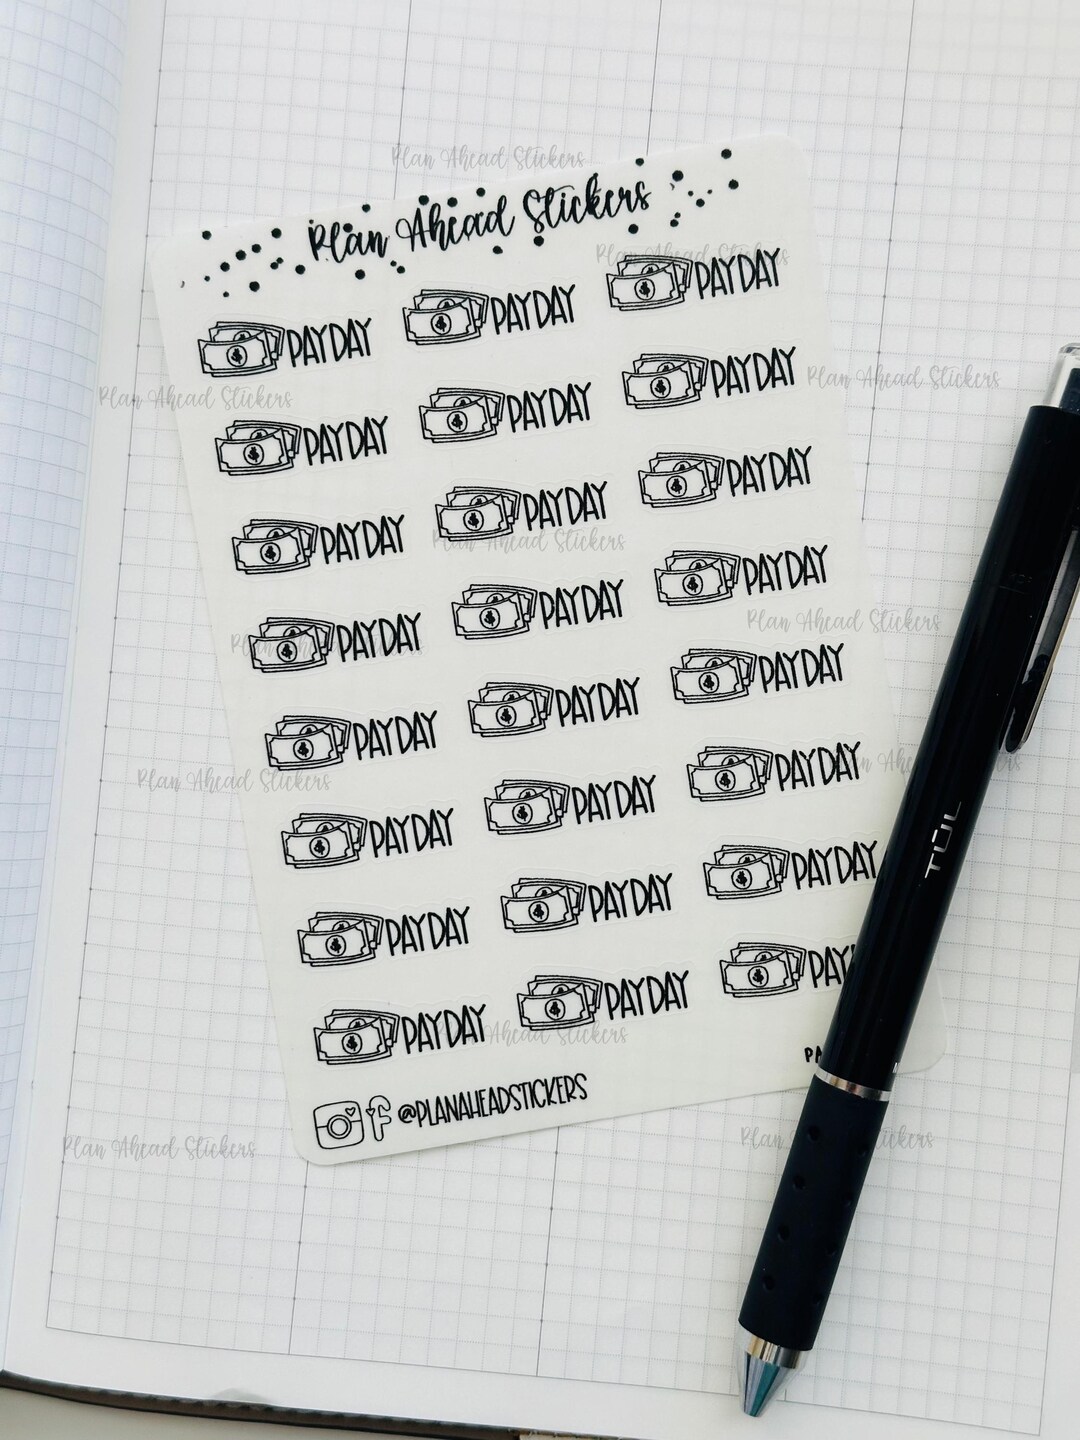 Plan Ahead Stickers
Plan Ahead Stickers
Plan Ahead Stickers
PAYDAY PAYDAY PAYDAY
Plan Ahead Stickers
Plan Ahead Stickers
PAYDAY PAYDAY PAYDAY
PAYDAY PAYDAY PAYDAY
Plan Ahead Stickers
PAYDAY PAYDAY PAYDAY
Plan Ahead Stickers
Plan Ahead Stickers
PAYDAY PAYDAY PAYDAY
Plan Ahead Stickers
Plan Ahead
PAYDAY PAYDAY PAYDAY
TUL
PAYDAY PAYDAY PAYDAY
PAYDAY PAYDAY PAY
Plan Ahead Stickers
PA
@PLANAHEADSTICKERS
Plan Ahead Stickers
Plan Ahead Stickers